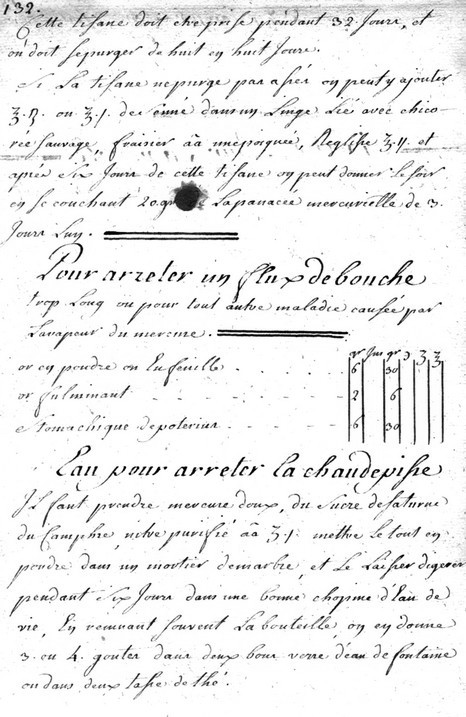 132.
Cette tisane doit etre prise pendant 32 Jours, et
on doit se purger de huit en huit Jours.
Si La tisane ne purge pas assés on peut y ajouter
ʒ.ß. ou ʒ.j. de senné dans un Linge Lié avec chico
rée sauvage, fraisier āā une poignée, Reglisse ʒ.ij. et
apres Six Jours de cette tisane on peut donner Le soir
en se couchant 20. gr La panacée mercurielle de 3.
Jours L'un.
Pour arreter un flux de bouche
trop Long ou pour tout autre maladie causée par
La vapeur du mercure.
gr Jus gr
or en poudre ou En feuille 6 30
or fulminant 2 6
Stomachique de poterius 6 30
Eau pour arreter la chaudepisse
Il faut prendre mercure doux, du Sucre de saturne
du Camphre, nitre purifié āā ʒ.j. mettre Le tout en
poudre dans un mortier de marbre, et Le Laisser digerer
pendant Six Jours dans une bonne chopine d'Eau de
vie, En remuant souvent La bouteille, on en donne
3. ou 4. goutes dans deux bons verre d'eau de fontaine
ou dans deux tasse de thé.